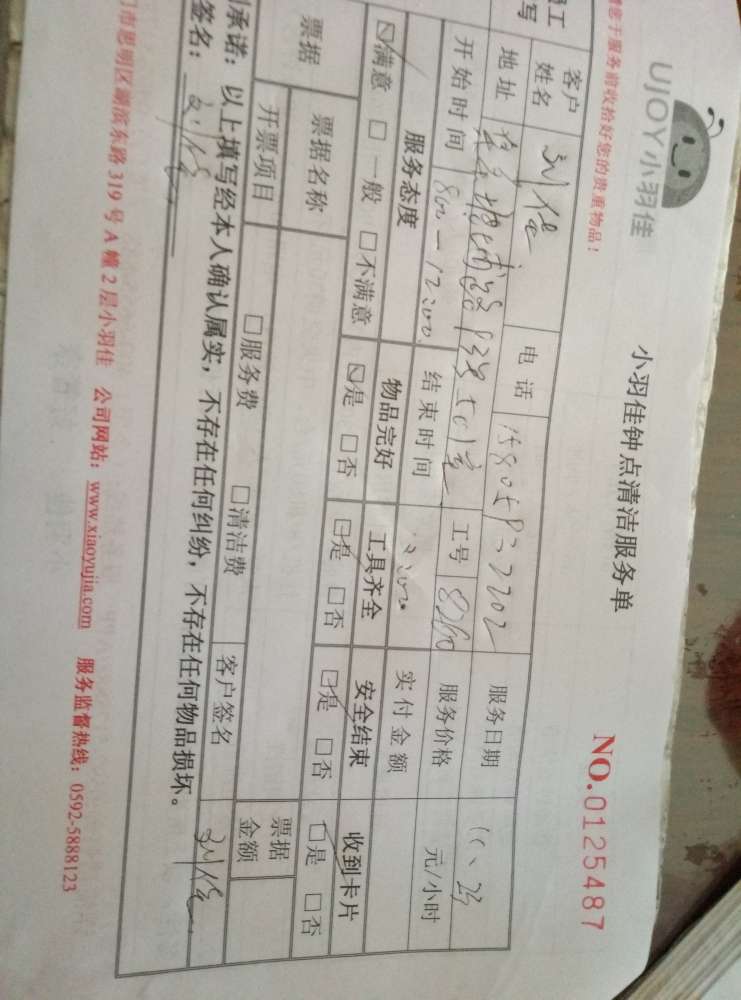 UJOY小羽佳
小羽佳钟点清洁服务单
NO.0125487
服务前收拾好您的贵重物品！
客户姓名 电话 服务日期 11、23
地址 工号 8260 服务价格 元/小时
开始时间 8:00-12:00 结束时间 12:00 实付金额
服务态度 物品完好 工具齐全 安全结束 收到卡片
☑满意 □一般 □不满意 ☑是 □否 ☑是 □否 ☑是 □否 ☑是 □否
票据 票据名称 票据金额
开票项目 □服务费 □清洁费 客户签名
承诺：以上填写经本人确认属实，不存在任何纠纷，不存在任何物品损坏。
签名：
门市思明区湖滨东路319号A幢2层小羽佳 公司网站：www.xiaoyujia.com 服务监督热线：0592-5888123